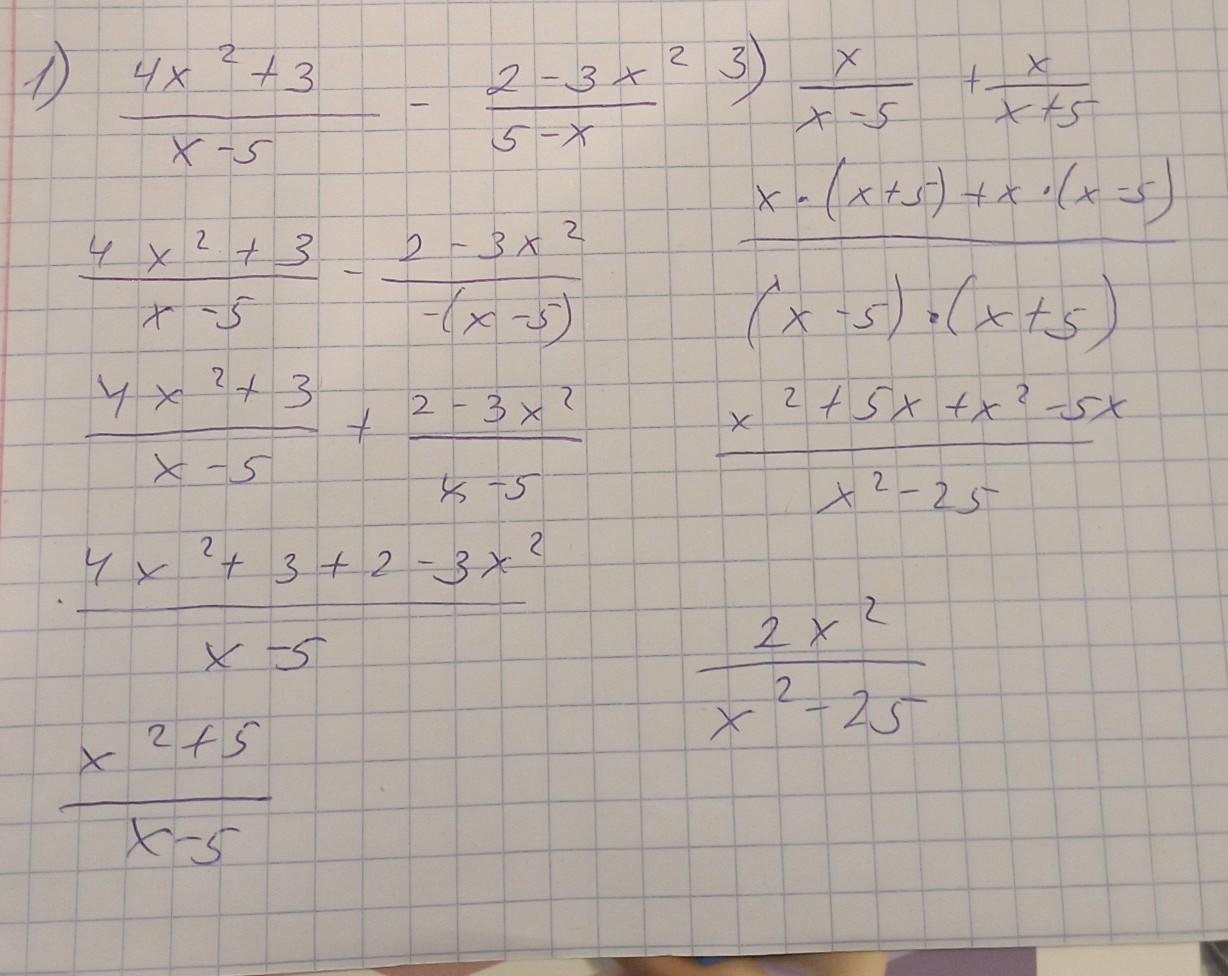 1) (4x² + 3)/(x - 5) - (2 - 3x²)/(5 - x)
(4x² + 3)/(x - 5) - (2 - 3x²)/(-(x - 5))
(4x² + 3)/(x - 5) + (2 - 3x²)/(x - 5)
(4x² + 3 + 2 - 3x²)/(x - 5)
(x² + 5)/(x - 5)
3) x/(x - 5) + x/(x + 5)
(x · (x + 5) + x · (x - 5))/((x - 5) · (x + 5))
(x² + 5x + x² - 5x)/(x² - 25)
2x²/(x² - 25)